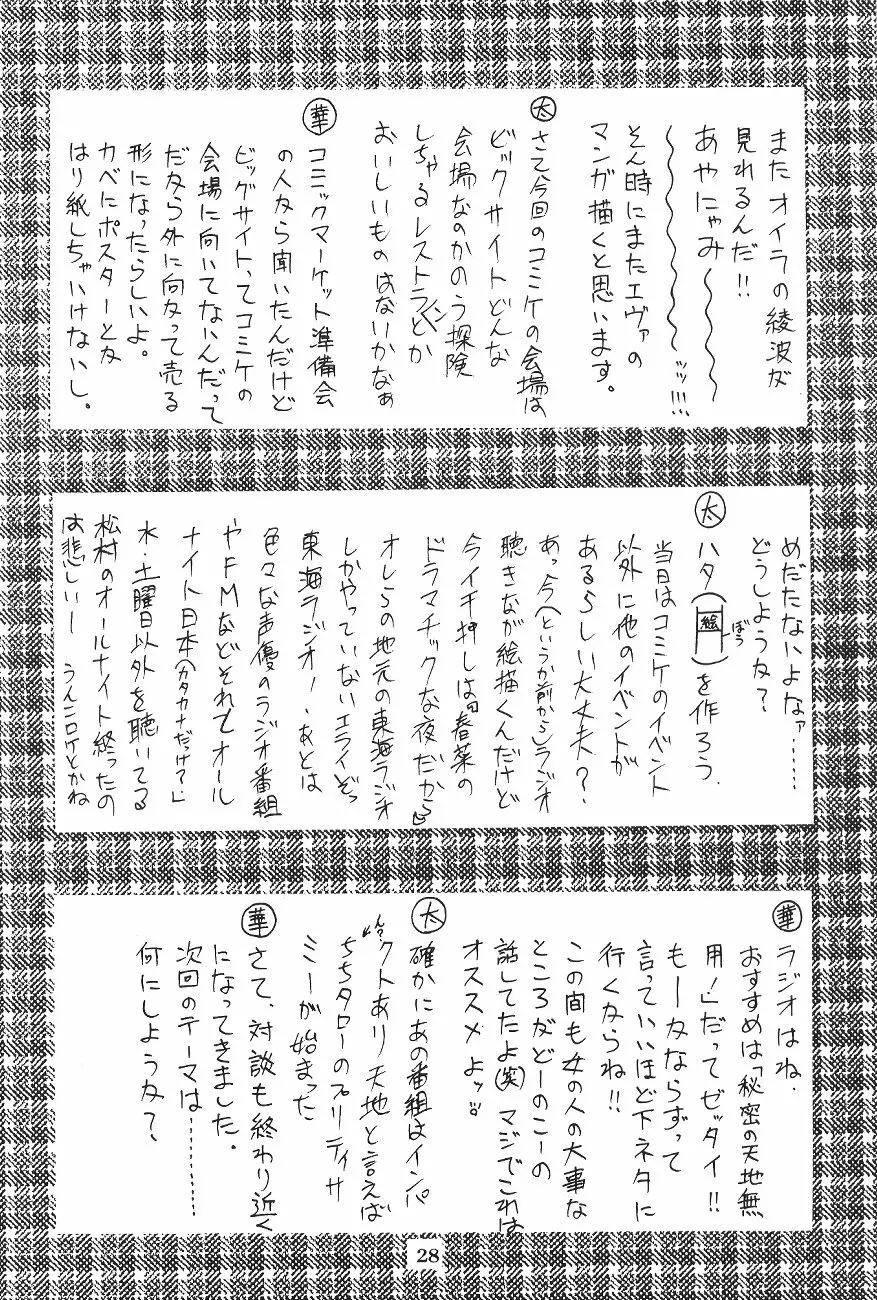 またオイラの綾波が
見れるんだ!!
あやにゃみ〜〜〜
〜〜〜〜〜〜ッッ!!!
そん時にまたエヴァの
マンガ描くと思います。
太 さて今回のコミケの会場は
ビックサイトどんな
会場なのかのう探険
しちゃるレストランとか
おいしいものはないかなぁ
華 コミックマーケット準備会
の人から聞いたんだけど
ビッグサイトってコミケの
会場に向いてないんだって
だから外に向かって売る
形になったらしいよ。
カベにポスターとか
はり紙しちゃいけないし。
めだたないよなァ……
どうしようか?
太 ハタ(絵 ぼう)を作ろう.
当日はコミケのイベント
以外に他のイベントが
あるらしい大丈夫?
あっ今(というか前から)ラジオ
聴きなが絵描くんだけど
今イチ押しは「春菜の
ドラマチックな夜だから」
オレらの地元の東海ラジオ
しかやっていないエライぞっ
東海ラジオ!あとは
色々な声優のラジオ番組
やFMなどそれとオール
ナイト日本(カタカナだっけ?)
水・土曜日以外を聴いてる
松村のオールナイト終ったの
は悲しいー うんこロケとかね
華 ラジオはね.
おすすめは「秘密の天地無
用!」だってゼッタイ!!
もーかならずって
言っていいほど下ネタに
行くからね!!
この間も女の人の大事な
ところがどーのこーの
話してたよ(笑)マジでこれは
オススメよッ
太 確かにあの番組はインパ
クトあり天地と言えば
ちちタローのプリティサ
ミーが始まった
華 さて、対談も終わり近く
になってきました。
次回のテーマは………
何にしようか?
28